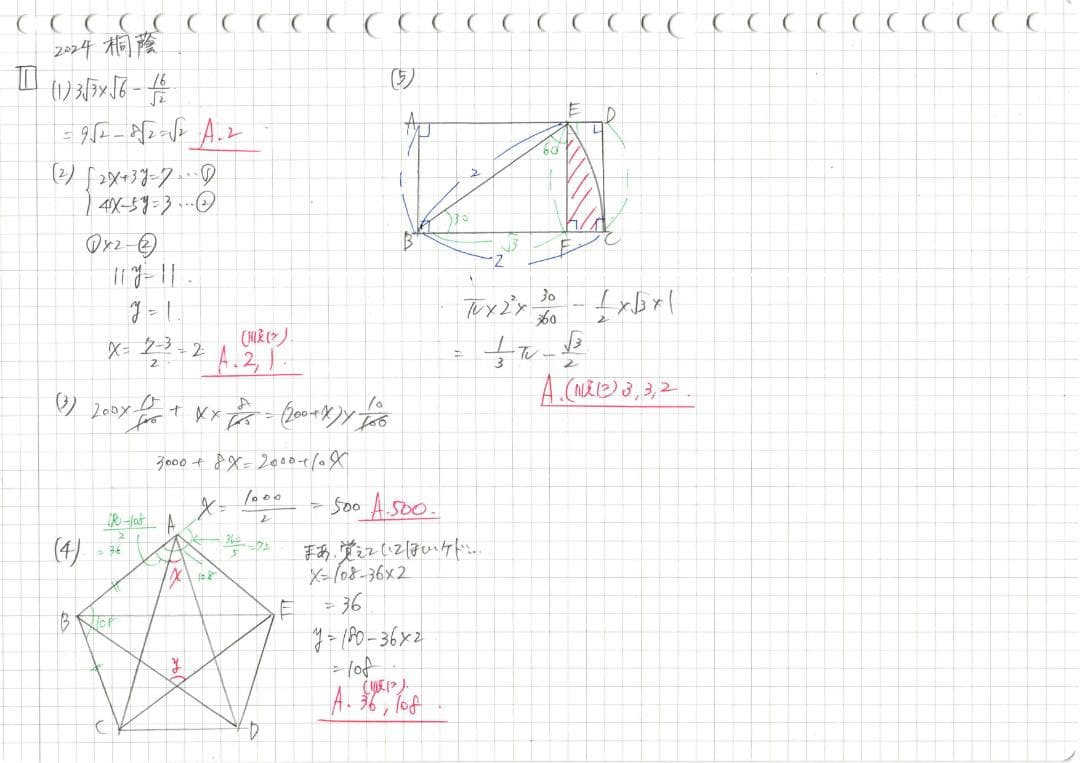 2024 桐蔭
1
(1) 3√3×√6 - 16/√2
= 9√2 - 8√2 = √2 A.2
(2) { 2x+3y=7 … ①
4x-5y=3 … ②
①×2-②
11y=11.
y=1.
x= (7-3)/2 = 2 (順に) A. 2, 1.
(3) 200×15/100 + x×8/100 = (200+x)×10/100
3000+8x=2000+10x
x= 1000/2 = 500 A.500.
(4)
(180-108)/2
= 36
A
360/5=72
x
108
B
108
E
y
C
D
まあ、覚えていてほしいケド…
x=108-36×2
= 36
y=180-36×2
=108
(順に)
A. 36, 108.
(5)
A
E
D
60
2
1
1
1
30
B
√3
F
C
2
π×2²×30/360 - 1/2×√3×1
= 1/3 π - √3/2
A. (順に) 3, 3, 2.